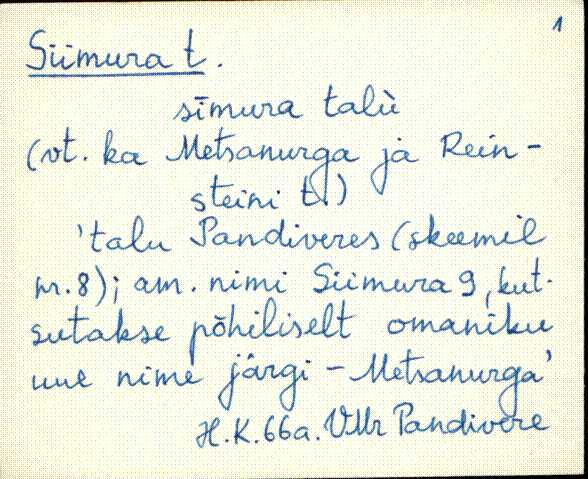 1
Siimura t.
sīmura talù
(vt. ka Metsanurga ja Rein-
steini t.)
'talu Pandiveres (skeemil
nr. 8); am. nimi Siimura 9, kut-
sutakse põhiliselt omaniku
uue nime järgi - Metsanurga'
H.K. 66a. VMr Pandivere